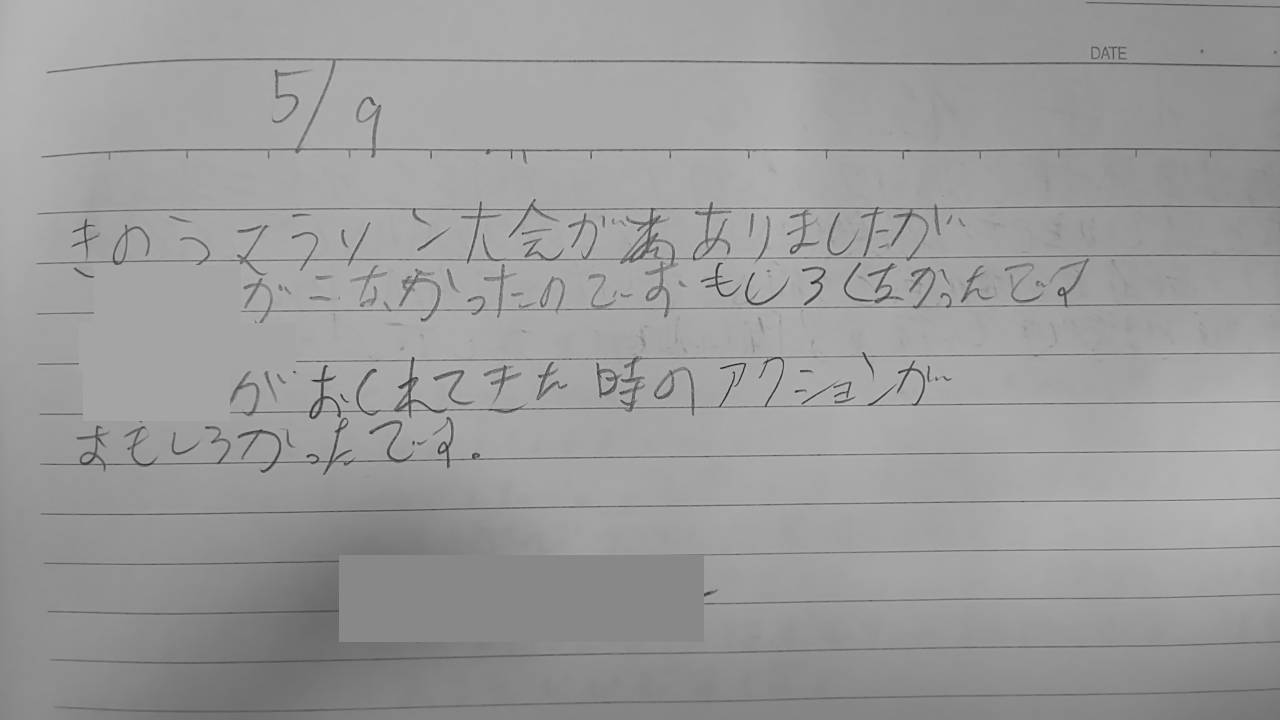 DATE
5/9
きのうマラソン大会がありましたが
がこなかったのでおもしろくなかったです
がおくれてきた時のアクションが
おもしろかったです。